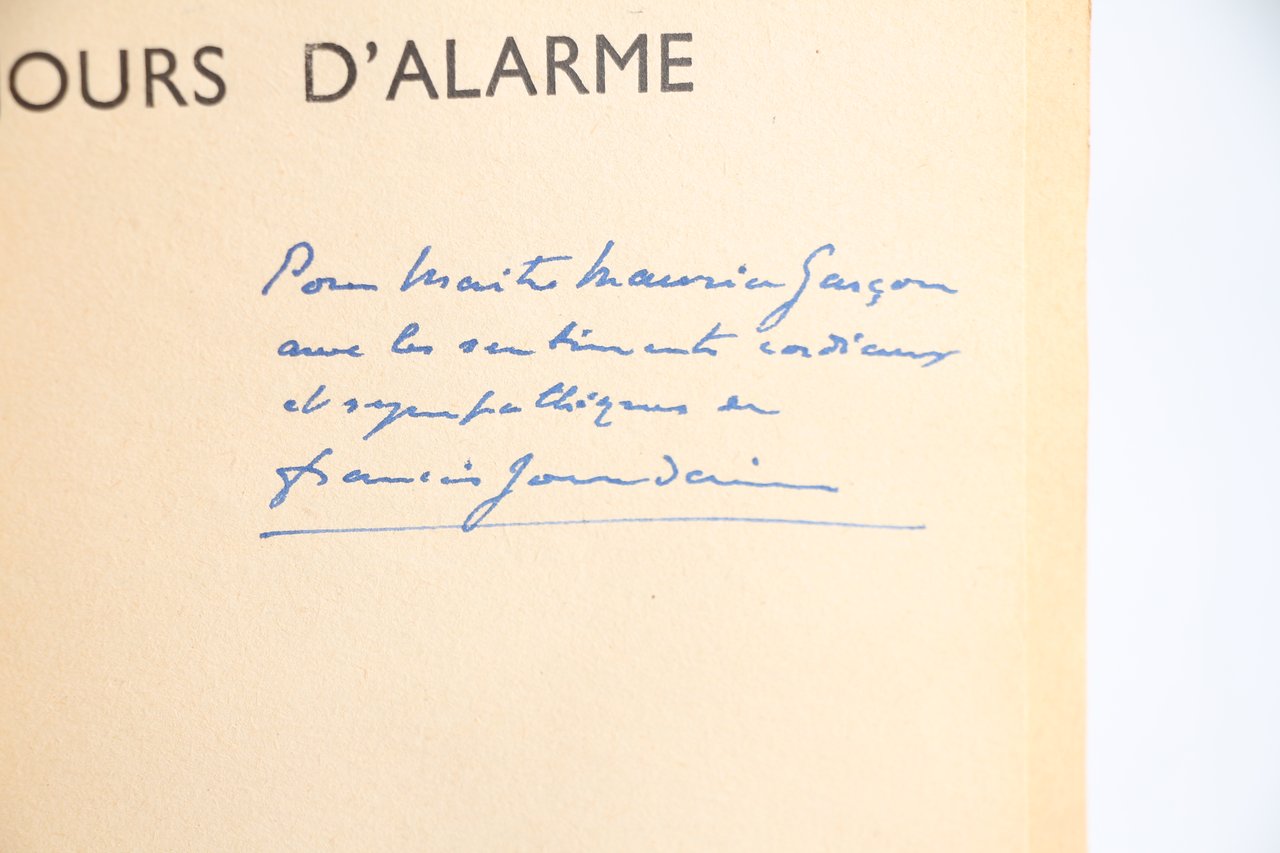 JOURS D'ALARME
Pour Maitre Maurice Garçon
avec les sentiments cordiaux
et sympathiques de
francis Jourdain